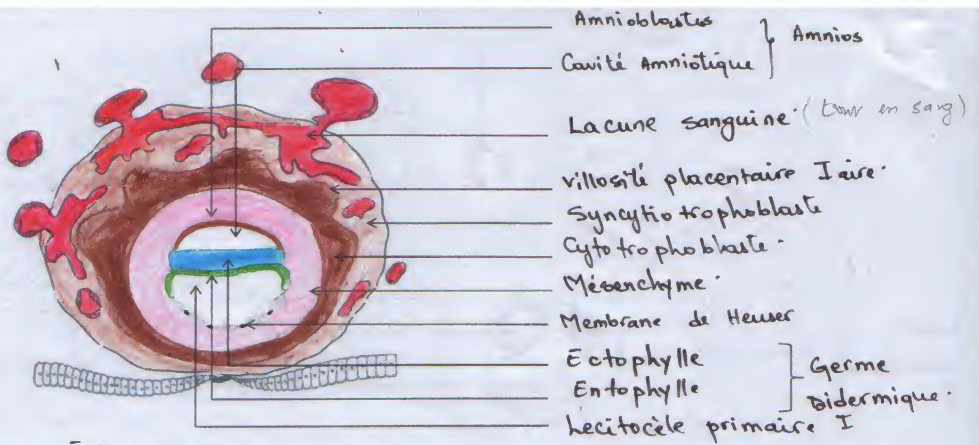 Amnioblastes
Cavité Amniotique
Amnios
Lacune sanguine (trou en sang)
villosité placentaire Iaire.
Syncytiotrophoblaste
Cytotrophoblaste.
Mésenchyme.
Membrane de Heuser
Ectophylle
Entophylle
Germe
Didermique.
Lecitocèle primaire I